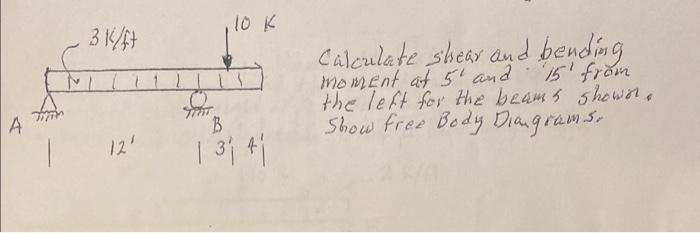 10 K
3 K/ft
Calculate shear and bending
moment at 5' and 15' from
the left for the beams shown.
Show free Body Diagrams.
A
B
12'
3'
4'